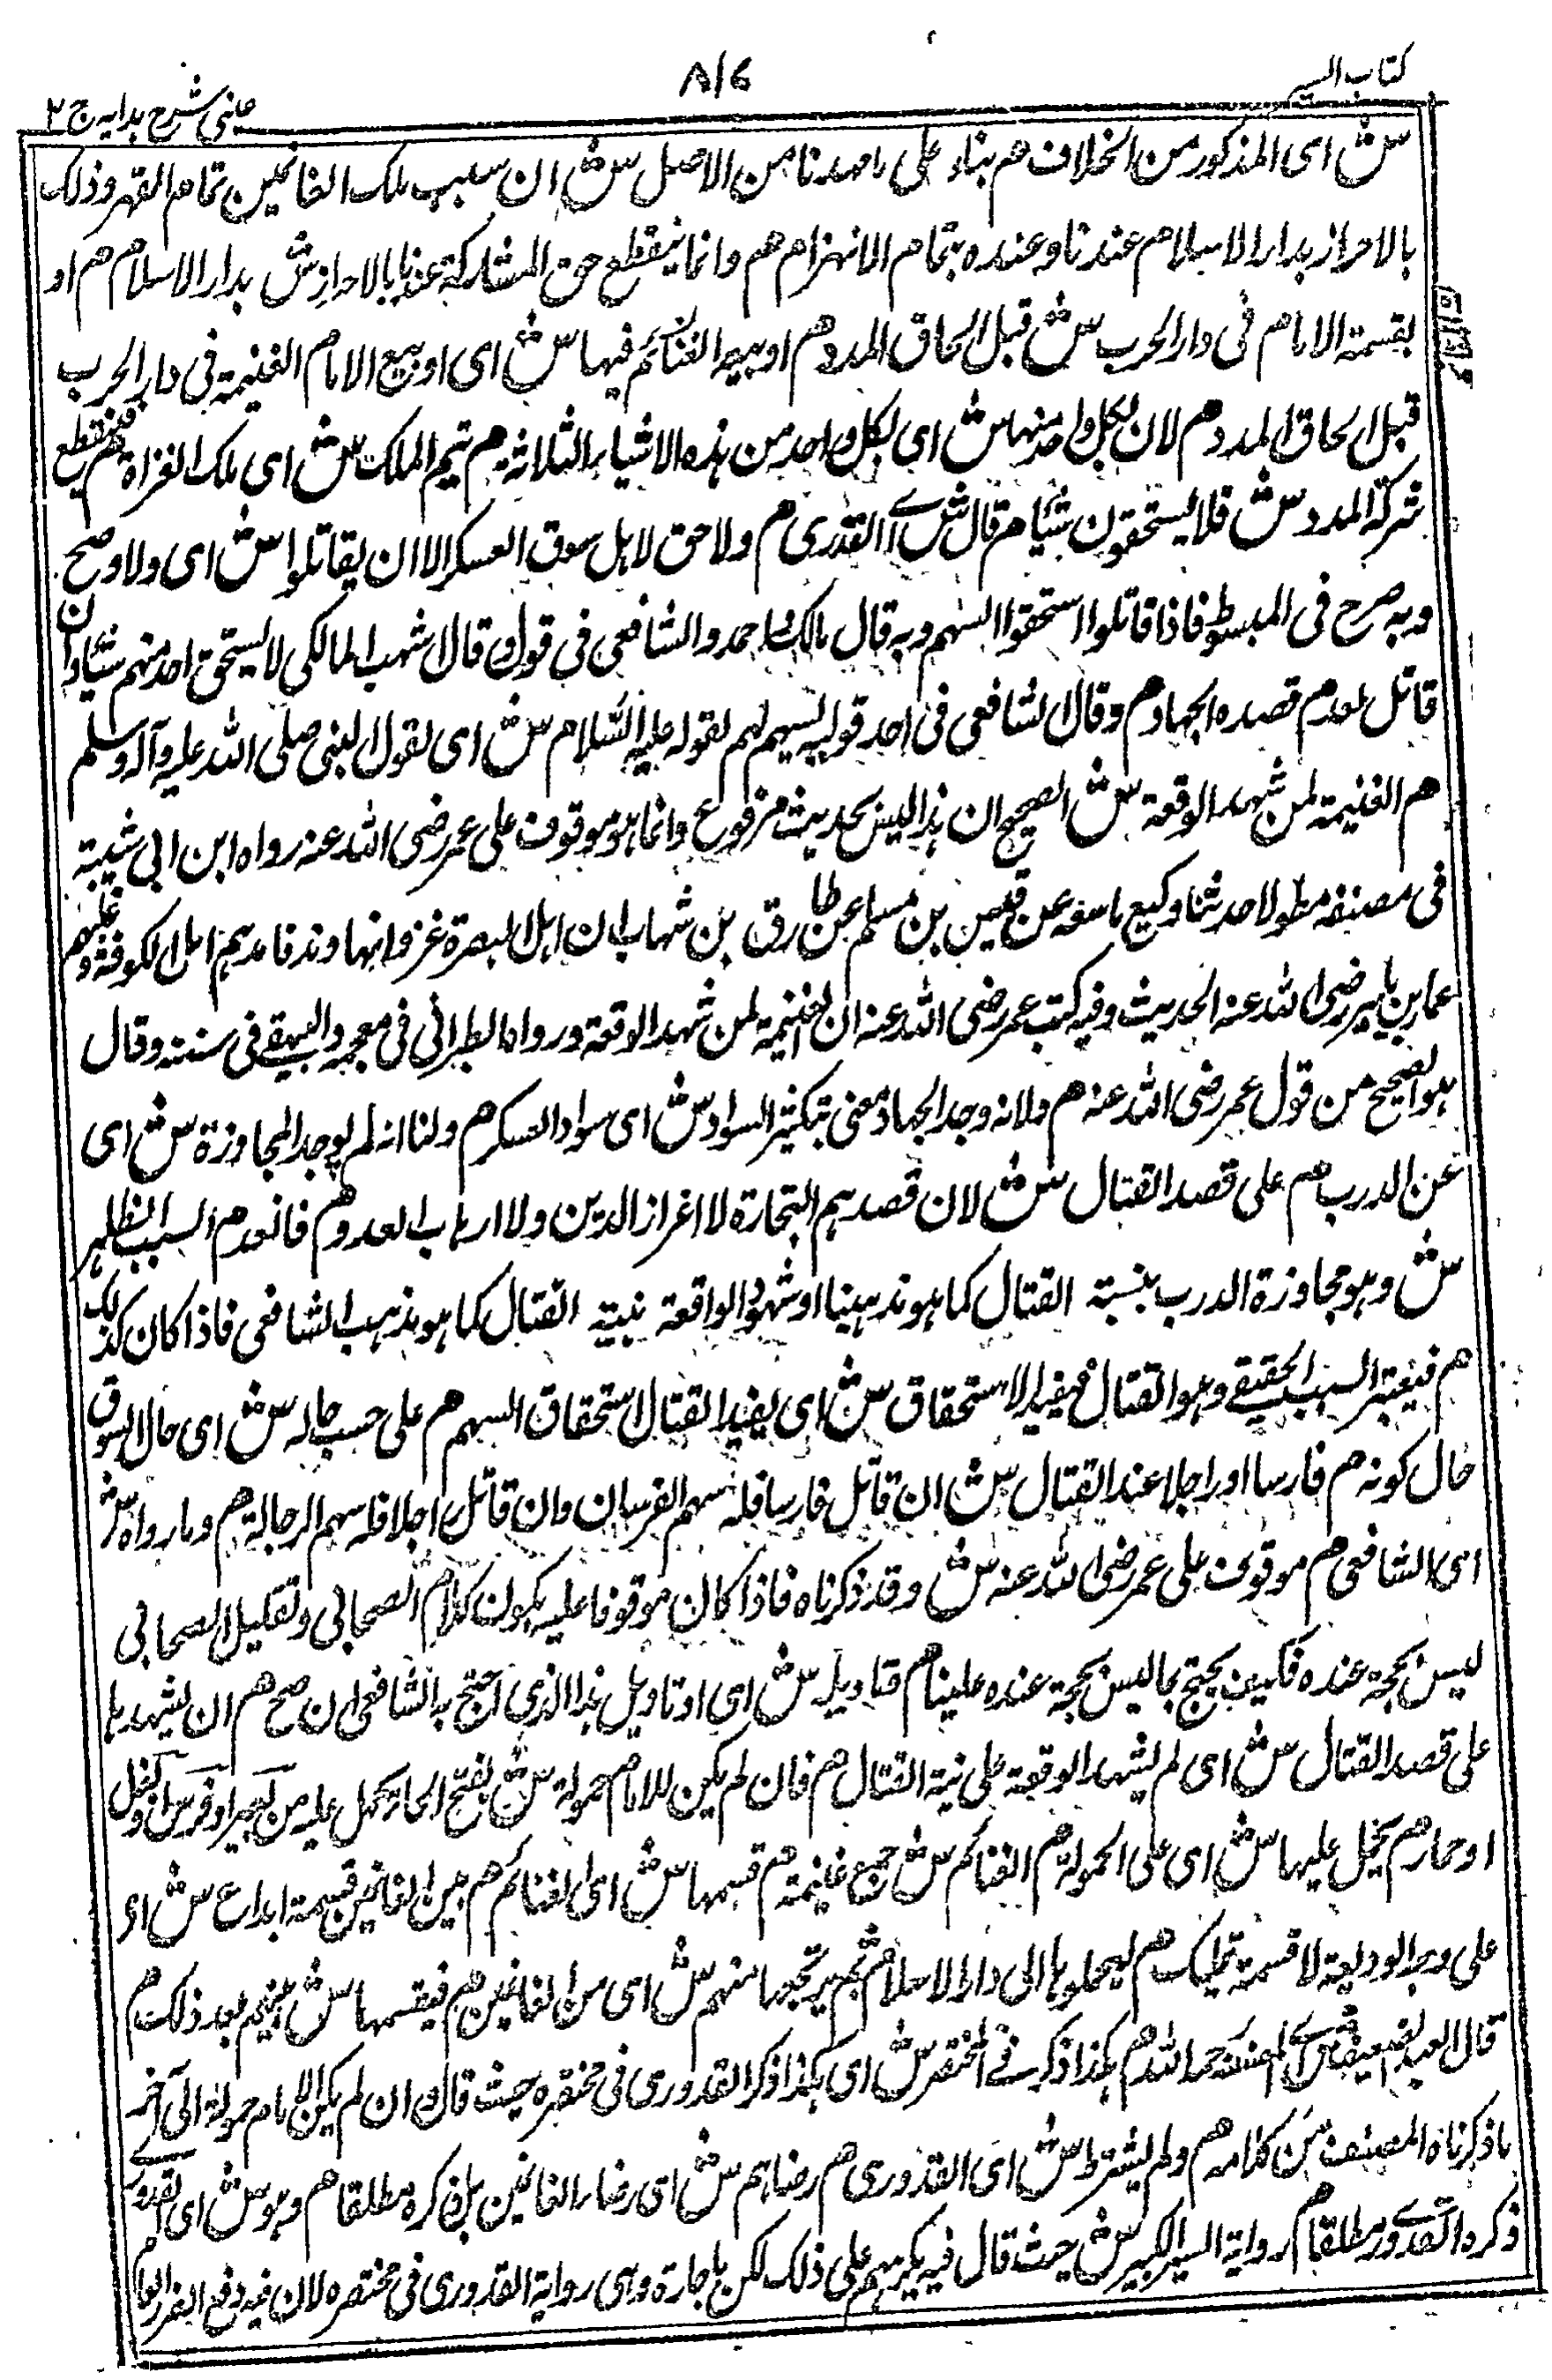 كتاب السير
٨١٦
عينى شرح هدايه ج ٢
ش اى المذكور من الخلاف هم بناء على ما مهدنا من الاصل ش ان سبب ملك الغانمين تمام القهر وذلك
بالاحراز بدار الاسلام عندنا وعنده بتمام الانهزام هم وانما ينقطع حق المشاركة عندنا بالاحراز ش بدار الاسلام هم او
بقسمة الامام فى دار الحرب ش قبل الحاق المدد هم او ببيعه الغنائم فيها ش اى او ببيع الامام الغنيمة فى دار الحرب
قبل الحاق المدد هم لان بكل واحد منها ش اى لكل واحد من هذه الاشياء الثلاثة هم تيم الملك ش اى ملك الغزاة هم فينقطع
شركة المدد ش فلا يستحقون شيئا هم قال ش اى القدورى هم ولا حق لاهل سوق العسكر الا ان يقاتلوا ش اى ولا وضح
وبه صرح فى المبسوط فاذا قاتلوا استحقوا السهم وبه قال مالك واحمد والشافعى فى قول وقال اشهب المالكى لا يستحق احد منهم شيئا وان
قاتل لعدم قصده الجهاد هم وقال الشافعى فى احد قوليه يسهم لهم لقوله عليه السلام ش اى لقول النبى صلى الله عليه وآله وسلم
هم الغنيمة لمن شهد الوقعة ش الصحيح ان هذا ليس بحديث مرفوع وانما هو موقوف على عمر رضى الله عنه رواه ابن ابى شيبة
فى مصنفه مطولا حدثنا وكيع نا سعبة عن قيس بن مسلم عن طارق بن شهاب ان اهل البصرة غزوا نهاوند فامدهم اهل الكوفة وعليهم
عمار بن ياسر رضى الله عنه الحديث وفيه كتب عمر رضى الله عنه ان الغنيمة لمن شهد الوقعة ورواه الطبرانى فى معجمه والبيهقى فى سننه وقال
هو الصحيح من قول عمر رضى الله عنه هم ولانه وجد الجهاد معنى بتكثير السواد ش اى سواد العسكر هم ولنا انه لم يوجد المجاوزة ش اى
عن الدرب هم على قصد القتال ش لان قصدهم التجارة لا اعزاز الدين ولا ارهاب العدو هم فانعدم السبب الظاهر
ش وهو مجاوزة الدرب بنية القتال كما هو مذهبنا او شهود الواقعة بنية القتال كما هو مذهب الشافعى فاذا كان كذلك
هم فيعتبر السبب الحقيقى وهو القتال فيفيد الاستحقاق ش اى يفيد القتال استحقاق السهم هم على حسب حاله ش اى حال السوقى
حال كونه هم فارسا او راجلا عند القتال ش ان قاتل فارسا فله سهم الفرسان وان قاتل راجلا فله سهم الرجالة هم وما رواه ش
اى الشافعى هم موقوف على عمر رضى الله عنه ش وقد ذكرناه فاذا كان موقوفا عليه يكون كلام الصحابى وتقليد الصحابى
ليس بحجة عنده فكيف يحتج بما ليس بحجة عنده علينا هم فتاويله ش اى او تاويل هذا الذى احتج به الشافعى ان صح هم ان يشهدها
على قصد القتال ش اى لم يشهد الوقعة على نية القتال هم فان لم يكن للامام حمولة ش بفتح الحاء ما يحمل عليه من بعير او فرس او بغل
او حمار هم يحمل عليها ش اى على الحمولة هم الغنائم ش جمع غنيمة هم قسمها ش اى الغنائم هم بين الغانمين قسمة ايداع ش اى
على وجه الوديعة لا قسمة تمليك هم ليحملوها الى دار الاسلام ثم يرتجعها منهم ش اى من الغانمين هم فيقسمها ش بينهم بعد ذلك هم
قال العبد الضعيف ش اى المصنف رحمه الله هم هكذا ذكر فى المختصر ش اى هكذا ذكر القدورى فى مختصره حيث قال وان لم يكن للامام حمولة الى آخر
ما ذكرناه المصنف من كلامه هم ولم يشترط ش اى القدورى هم رضاهم ش اى رضاء الغانمين بل ذكره مطلقا هم وهو ش اى القدورى
ذكره القدورى مطلقا هم رواية السير الكبير ش حيث قال فيه يكرههم على ذلك لكن باجارة وهى رواية القدورى فى مختصره لان فيه دفع الضرر العام